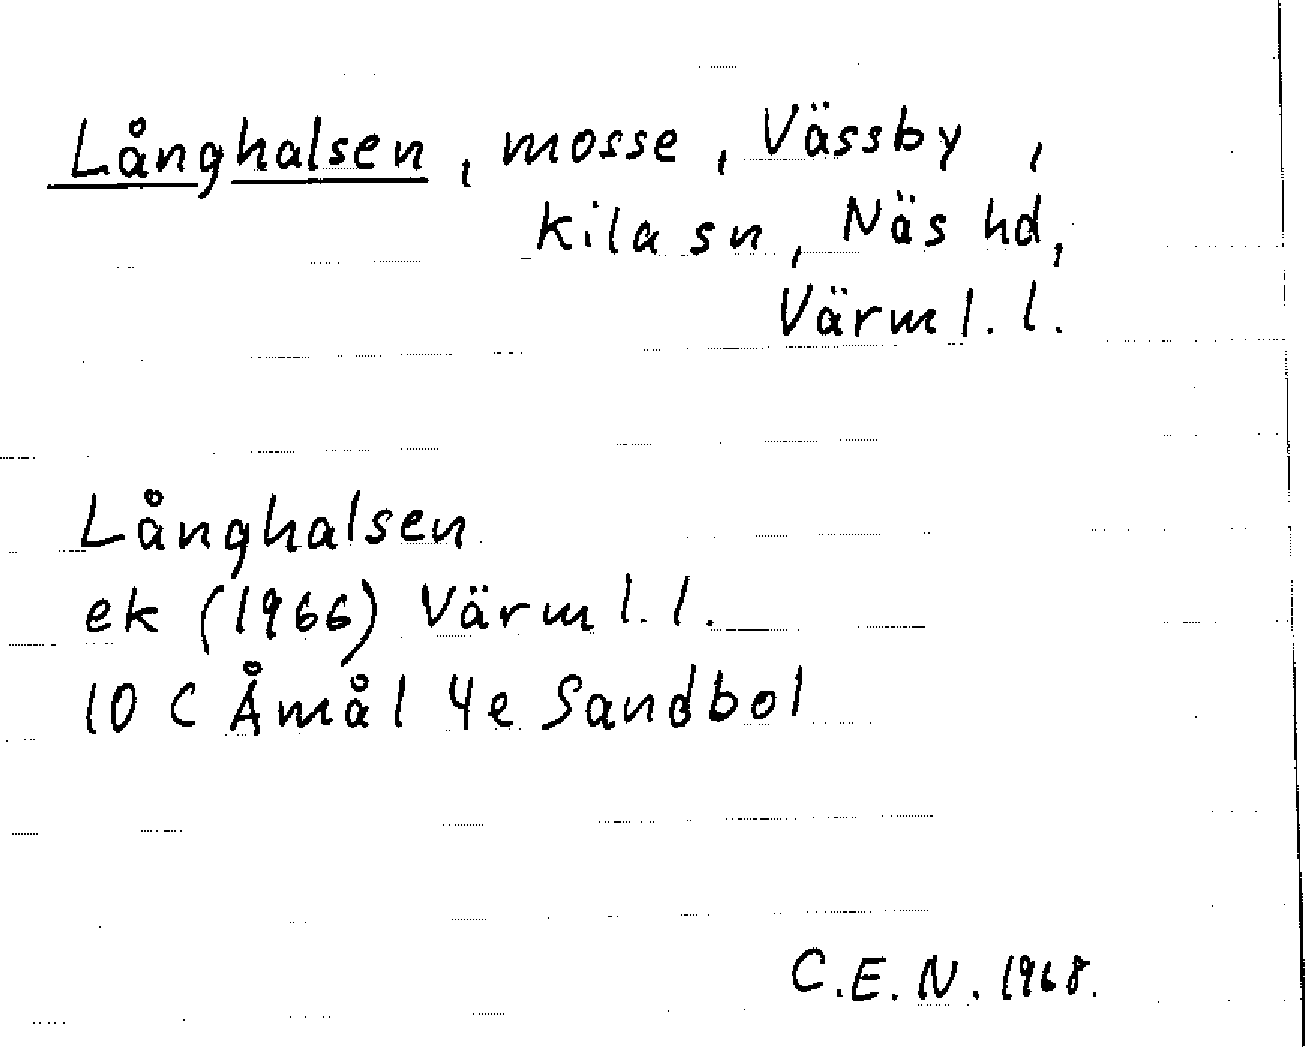 Långhalsen, mosse, Vässby,
Kila sn, Näs hd,
Värml. l.
Långhalsen
ek (1966) Värml. l.
10 C Åmål 4e Sandbol
C.E.N. 1968.